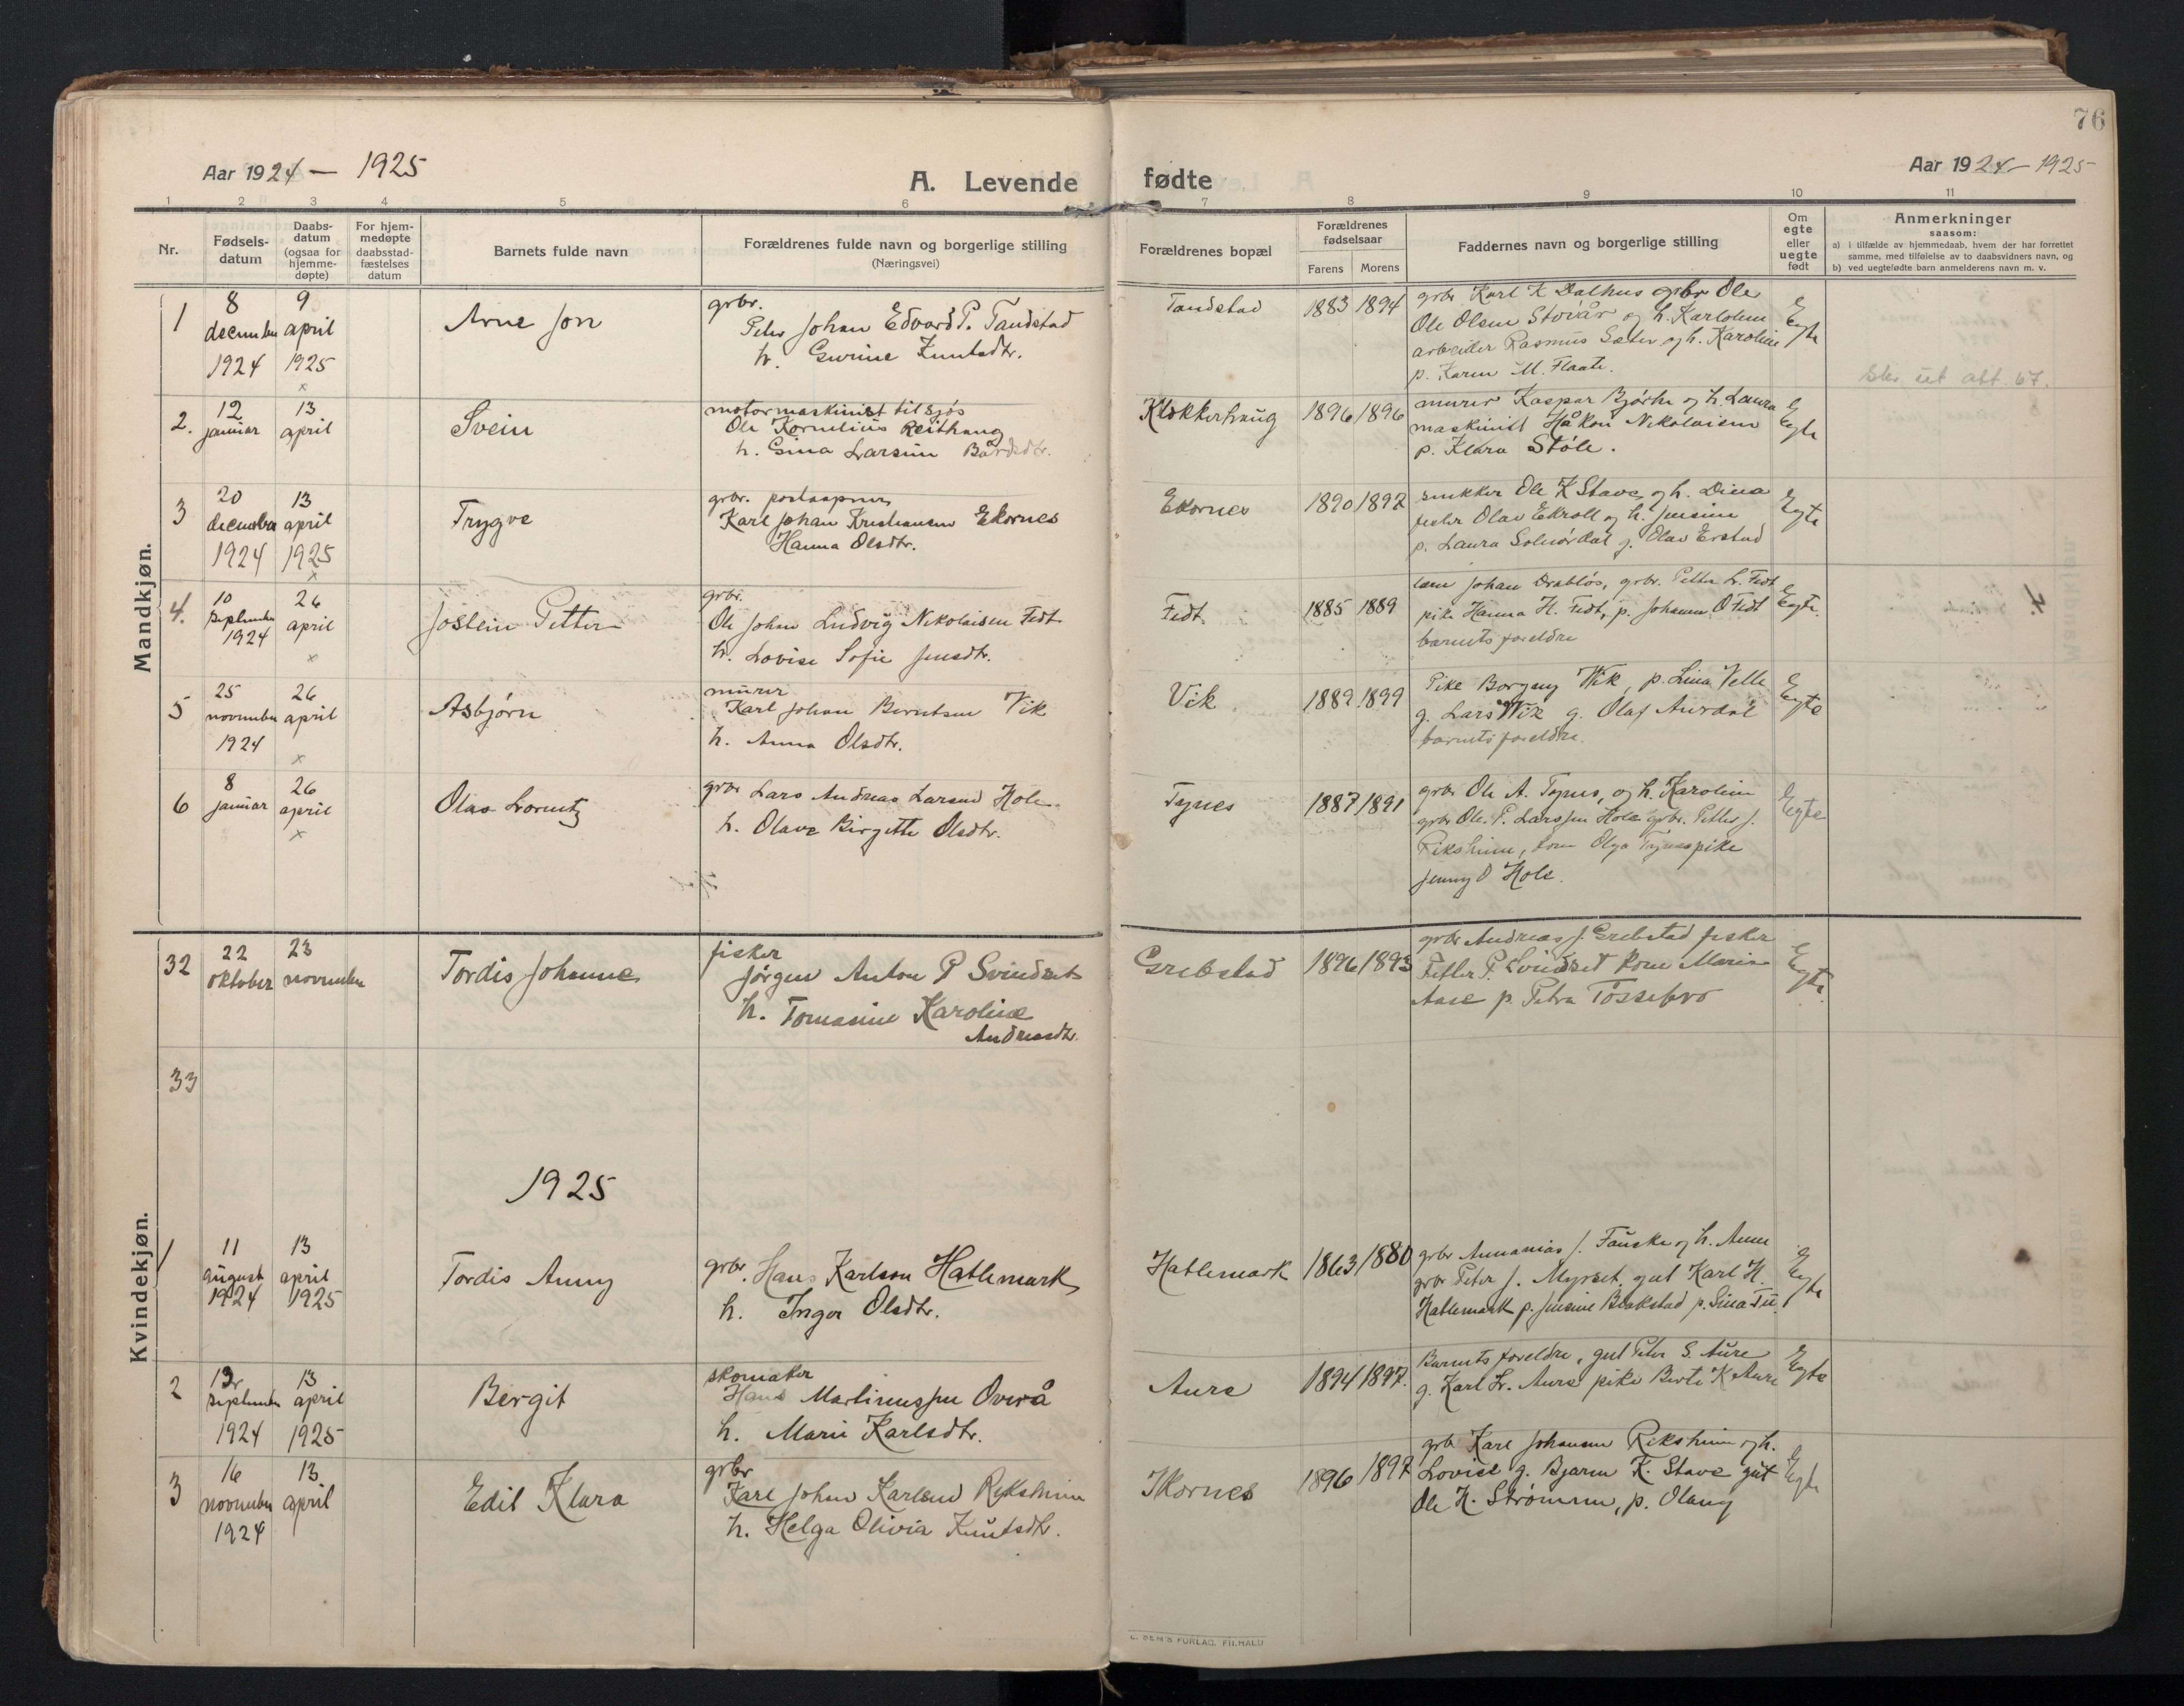 76
Aar 1924 – 1925
A. Levende fødte
Aar 1924 – 1925
1 2 3 4 5 6 7 8 9 10 11
Nr.
Fødsels-
datum
Daabs-
datum
(ogsaa for
hjemme-
døpte)
For hjem-
medøpte
daabsstad-
fæstelses
datum
Barnets fulde navn
Forældrenes fulde navn og borgerlige stilling
(Næringsvei)
Forældrenes bopæl
Forældrenes
fødselsaar
Farens Morens
Faddernes navn og borgerlige stilling
Om
egte
eller
uegte
født
Anmerkninger
saasom:
a) i tilfælde av hjemmedaab, hvem der har forrettet
samme, med tilføielse av to daabsvidners navn, og
b) ved uegtefødte barn anmelderens navn m. v.
Mandkjøn.
1
8
december
1924
9
april
1925
x
Arne Jon
grbr.
Johan Edvard P. Tandstad
h. Gurine Knutsdtr.
Tandstad
1883 1894
grbr. Karl K Dalhus grbr Ole
Ole Olsen og h. Karoline
arbeider Rasmus Sæter og h. Karoline
p. Karen M. Flaate.
Egte
att. 67.
2.
12
januar
13
april
Svein
motormaskinist tilsjøs
Ole Kornelius Reithaug
h. Gina Larsine Bårdsdtr.
Klokkerhaug
1896 1896
murer Kaspar Bjørke og h. Laura
maskinist Håkon Nikolaisen
p. Klara Støle.
Egte
3
20
december
1924
13
april
1925
x
Trygve
grbr. postaapner
Karl Johan Kristiansen Ekornes
Hanna Olsdtr.
Ekornes
1890 1897
snekker Ole K Stave og h. Dina
fisker Olav Ekroll og h. Jensine
p. Laura Solnørdal g. Olav Erstad
Egte
4.
10
september
1924
26
april
x
Jostein Petter
grbr.
Ole Johan Ludvig Nikolaisen Fedt
h. Lovise Sofie Jensdtr.
Fedt.
1885 1889
Johan Drabløs, grbr. Petter L. Fedt
pike Hanna H. Fedt, p. Johanna O Fedt
barnets foreldre
Egte.
5
25
november
1924
26
april
x
Asbjørn
murer
Karl Johan Berntsen Vik
h. Anna Olsdtr.
Vik
1889 1899
Pike Borgny Wik, p. Lina Velle
g. Lars Wik g. Olaf Aurdal
barnets foreldre.
Egte
6
8
januar
26
april
x
Olav Lorentz
grbr Lars Andreas Larsen Hole
h. Olave Birgitte Olsdtr.
Tynes
1887 1891
grbr Ole A. Tynes, og h. Karoline
grbr Ole. P. Larssen Hole grbr. Petter J.
Riksheim, kone Olga Tynes pike
Jenny O Hole.
Egte
Kvindekjøn.
32
22
oktober
23
november
Tordis Johanne
fisker
Jørgen Anton P Svindset
h. Tomasine Karoline
Andreasdtr.
Grebstad
1896 1893
grbr Andreas J. Grebstad fisker
Petter P. Svindset kone Marie
Aase p. Petra Tøssebro
Egte.
33
1925
1
11
august
1924
13
april
1925
Tordis Anny
grbr. Hans Karlson Hatlemark
h. Inger Olsdtr.
Hatlemark
1863 1880
grbr Annanias J. Fauske og h. Anne
grbr Peter J. Myrset, gut Karl H.
Hatlemark p. Jensine Blakstad p. Sina Tu.
Egte
2
12
september
1924
13
april
1925
Bergit
skomaker
Hans Martinussen Overå
h. Marie Karlsdtr.
Aure
1894 1897.
Barnets foreldre, gut Peter S. Aure
g. Karl Lr. Aure pike Berte K Aure
Egte
3
16
november
1924
13
april
Edit Klara
grbr
Karl Johan Karlsen Riksheim
h. Helga Olivia Knutsdtr.
Ikornes
1896 1897
grbr Karl Johansen Riksheim og h.
Lovise g. Bjarne K. Stave gut
Ole K. Strømmen, p. Olaug
Egte